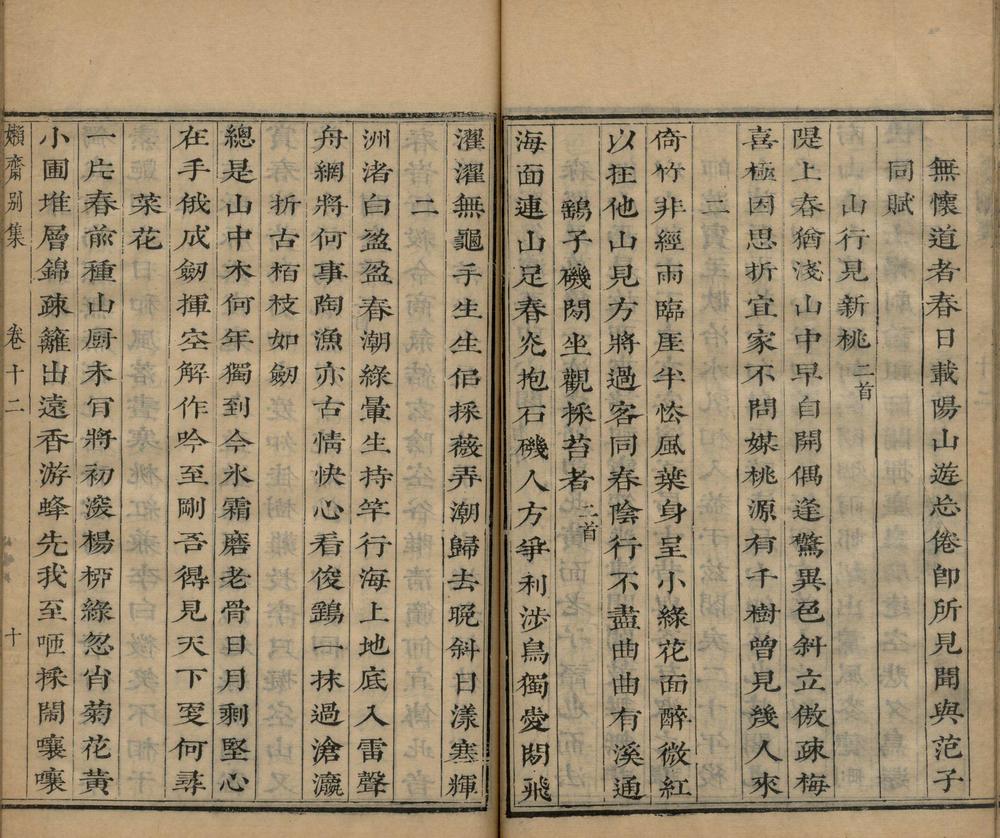 無懷道者春日載陽山遊忘倦卽所見聞與范子
同賦
山行見新桃二首
隄上春猶淺山中早自開偶逢驚異色斜立傲疎梅
喜極因思折宜家不問媒桃源有千樹曾見幾人來
二
倚竹非經雨臨厓半恠風葉身呈小綠花面醉微紅
以在他山見方將過客同春陰行不盡曲曲有溪通
鷂子磯閱坐觀採苔者二首
海面連山足春光抱石磯人方爭利涉鳥獨愛閒飛
濯濯無龜手生生侶採薇弄潮歸去晚斜日漾寒輝
二
洲渚白盈盈春潮綠暈生持竿行海上地底入雷聲
舟網將何事陶漁亦古情快心看俊鷂一抹過滄瀛
賦春折古栢枝如劒
總是山中木何年獨到今氷霜磨老骨日月剩堅心
在手俄成劒揮空解作吟至剛吾得見天下更何尋
菜花
一片春前種山厨未肯將初潑楊栁綠忽省菊花黃
小圃堆層錦疎籬出遠香游蜂先我至咂揉鬧嚷嚷
嬾齋别集 卷十二 十